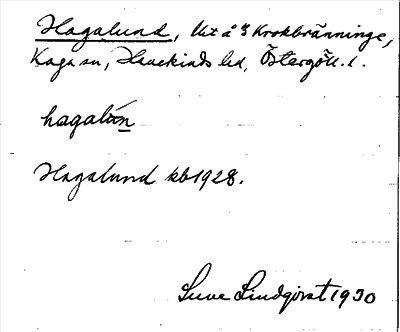 Hagalund, Ut å Krokbränninge,
Kaga sn, Hanekinds hd, Östergötl. l.
hagalun
Hagalund kb 1928.
Sune Lindqvist 1930